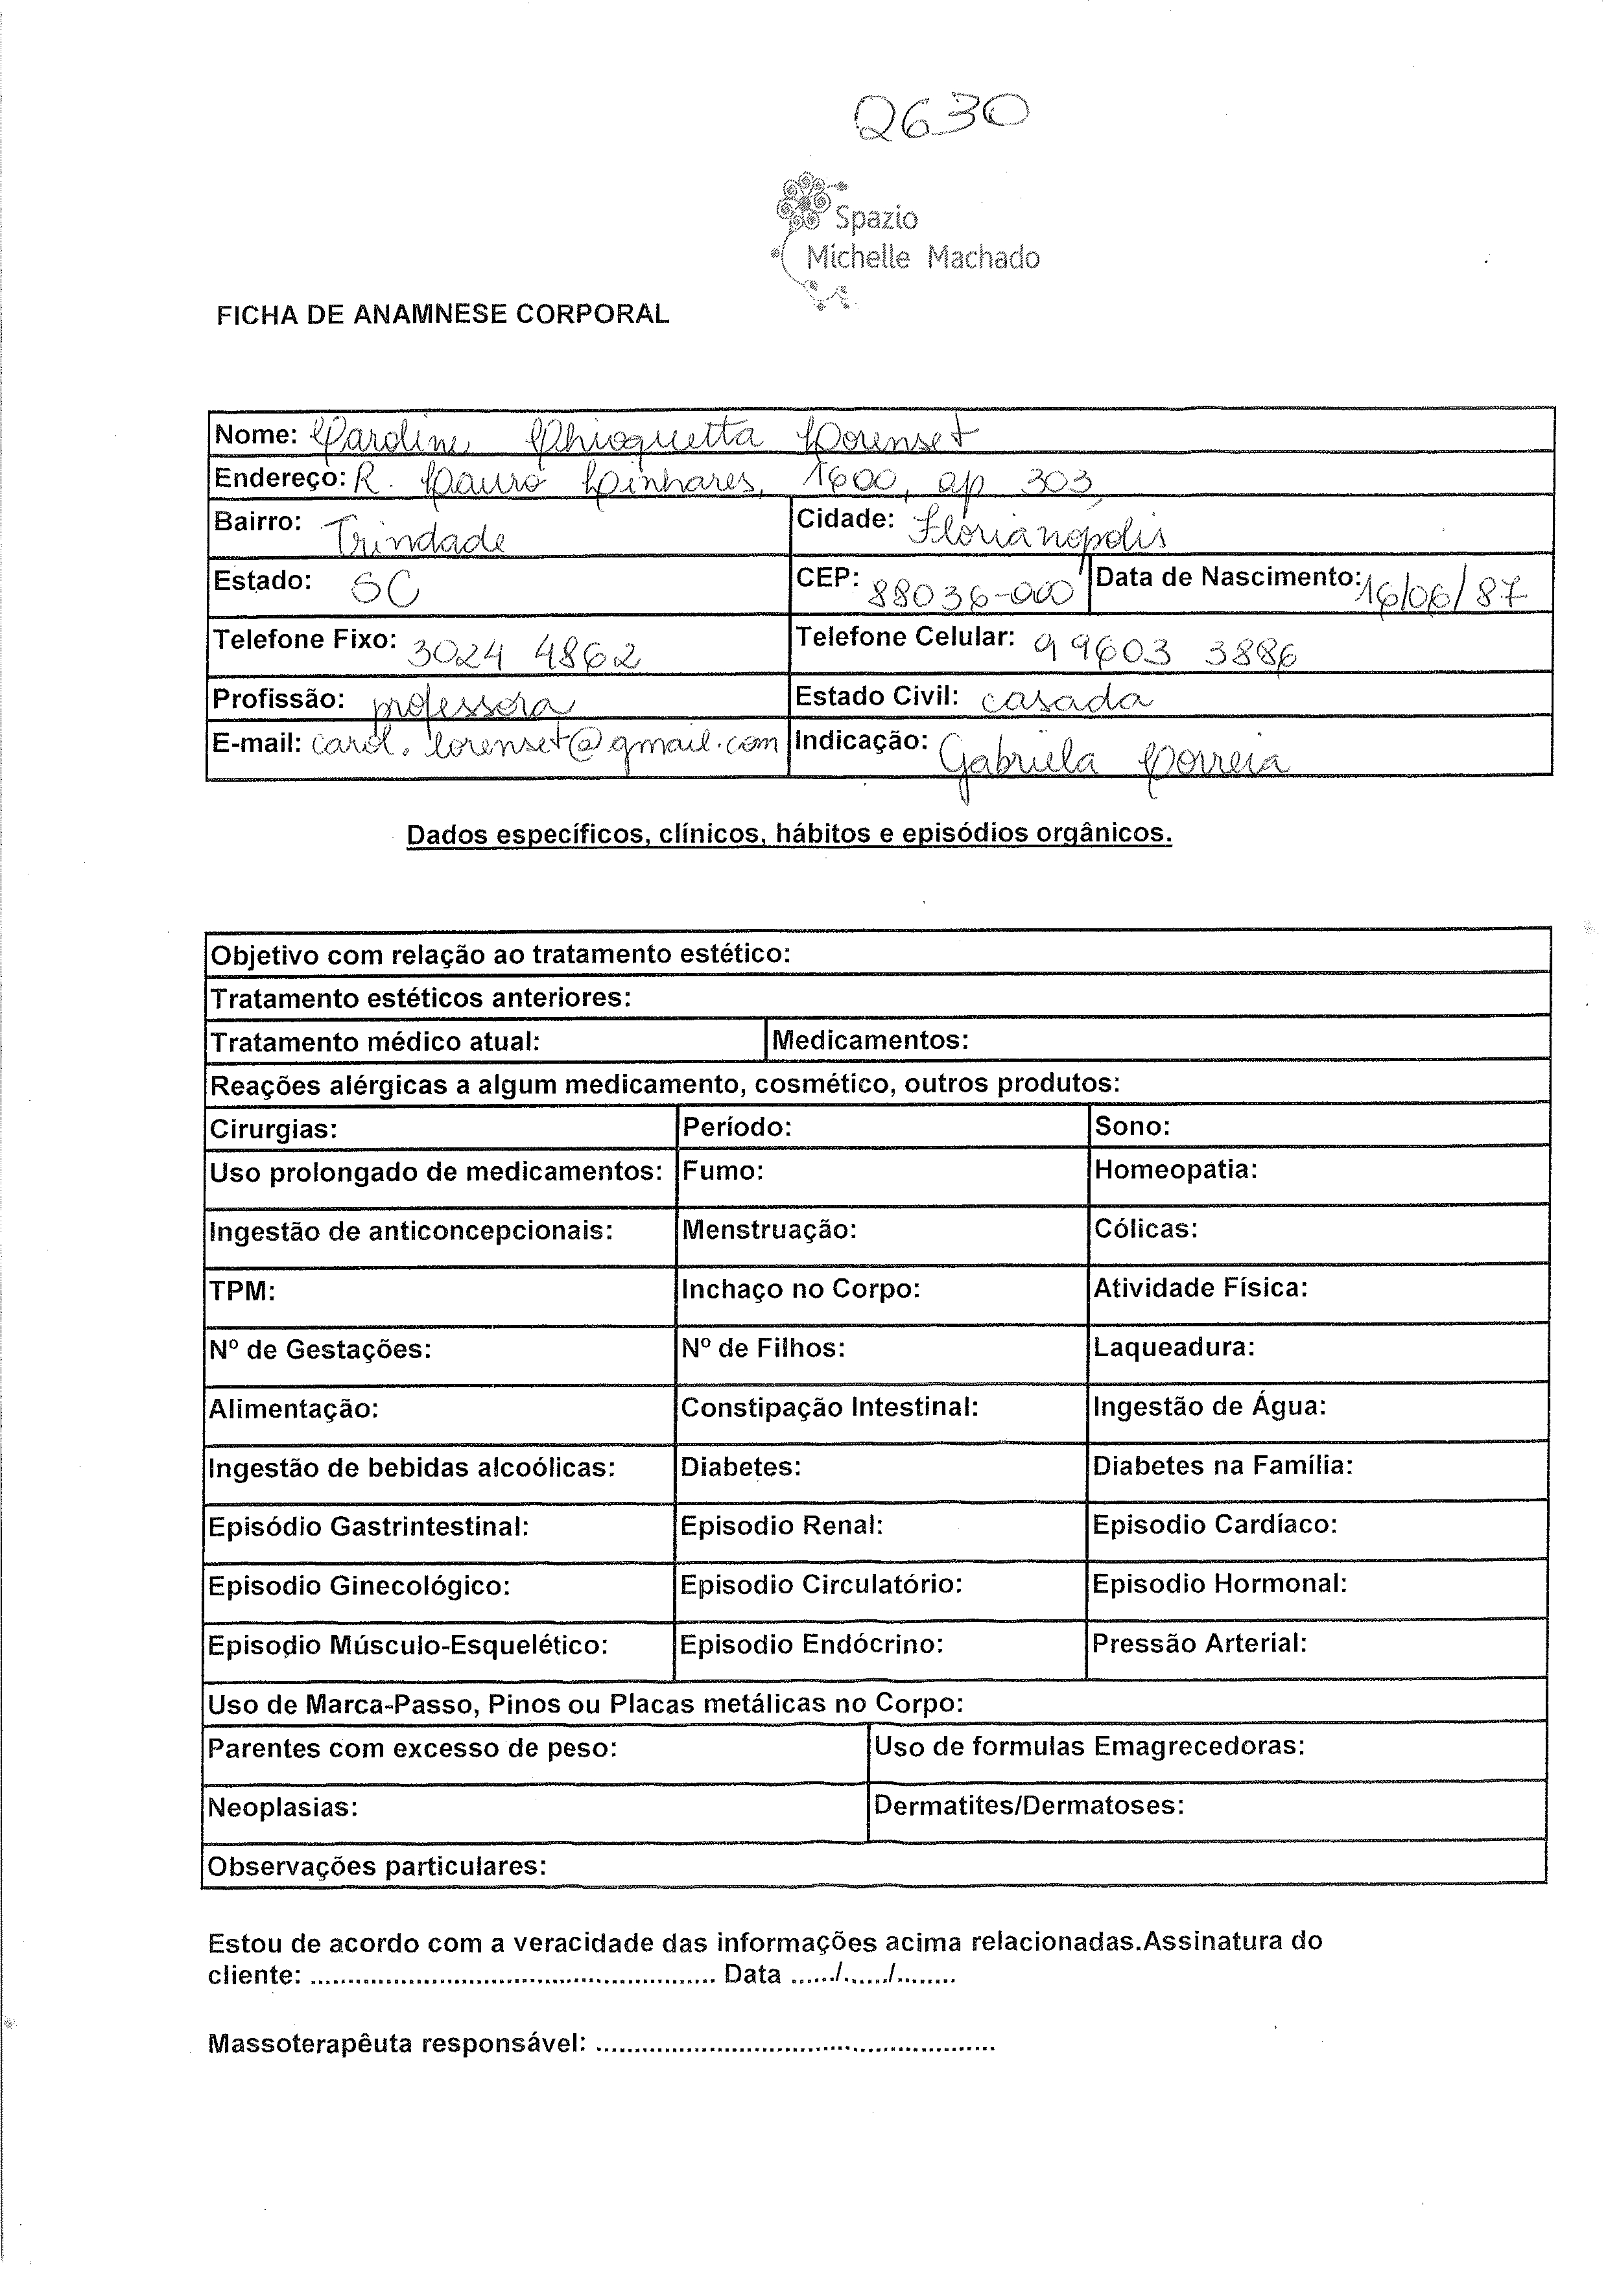 2630
Spazio
Michelle Machado
FICHA DE ANAMNESE CORPORAL
Nome: Caroline Chioquetta Lorenset
Endereço: R. Lauro Linhares, 1600, ap 303
Bairro: Trindade Cidade: Florianópolis
Estado: SC CEP: 88036-000 Data de Nascimento: 16/06/87
Telefone Fixo: 3024 4862 Telefone Celular: 9 9603 3886
Profissão: professora Estado Civil: casada
E-mail: carol.lorenset@gmail.com Indicação: Gabriela Correia
Dados específicos, clínicos, hábitos e episódios orgânicos.
Objetivo com relação ao tratamento estético:
Tratamento estéticos anteriores:
Tratamento médico atual: Medicamentos:
Reações alérgicas a algum medicamento, cosmético, outros produtos:
Cirurgias: Período: Sono:
Uso prolongado de medicamentos: Fumo: Homeopatia:
Ingestão de anticoncepcionais: Menstruação: Cólicas:
TPM: Inchaço no Corpo: Atividade Física:
Nº de Gestações: Nº de Filhos: Laqueadura:
Alimentação: Constipação Intestinal: Ingestão de Água:
Ingestão de bebidas alcoólicas: Diabetes: Diabetes na Família:
Episódio Gastrintestinal: Episodio Renal: Episodio Cardíaco:
Episodio Ginecológico: Episodio Circulatório: Episodio Hormonal:
Episodio Músculo-Esquelético: Episodio Endócrino: Pressão Arterial:
Uso de Marca-Passo, Pinos ou Placas metálicas no Corpo:
Parentes com excesso de peso: Uso de formulas Emagrecedoras:
Neoplasias: Dermatites/Dermatoses:
Observações particulares:
Estou de acordo com a veracidade das informações acima relacionadas.Assinatura do
cliente: ..................................................... Data ....../....../........
Massoterapêuta responsável: ....................................................